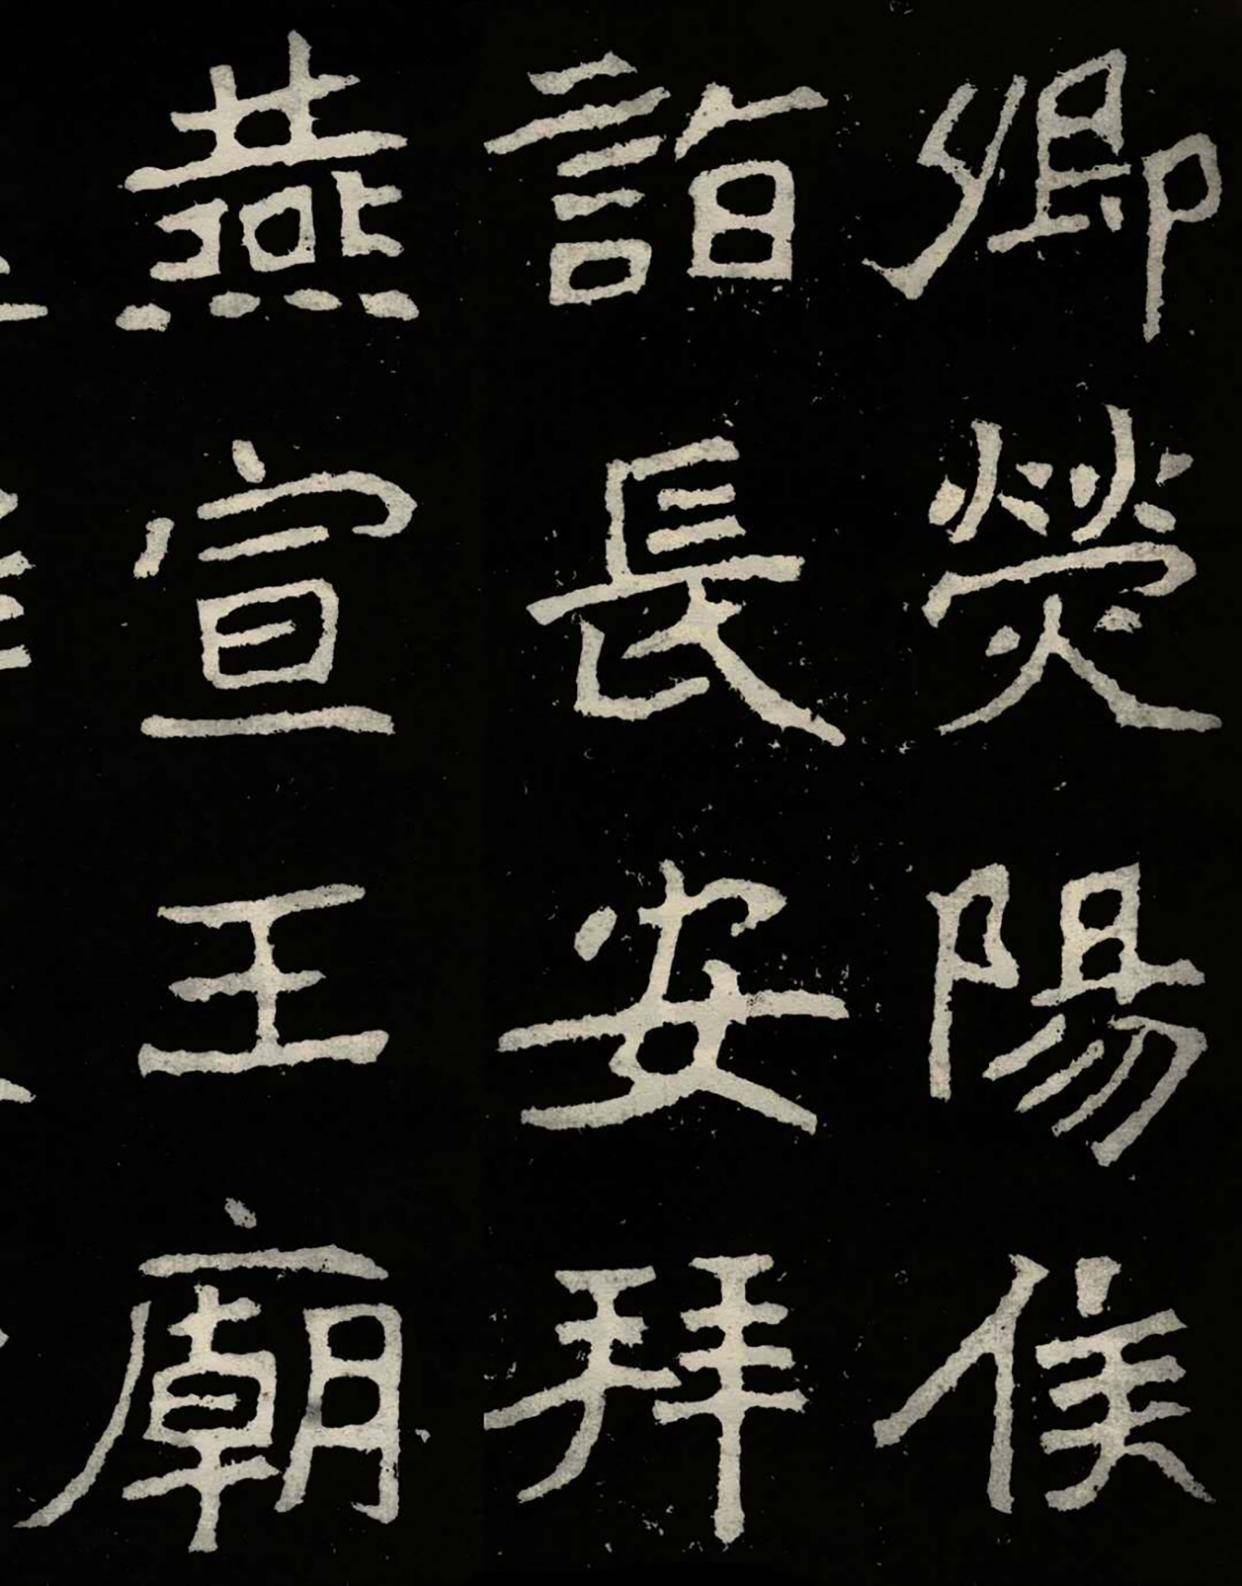 卿熒陽侯
詣長安拜
燕宣王廟